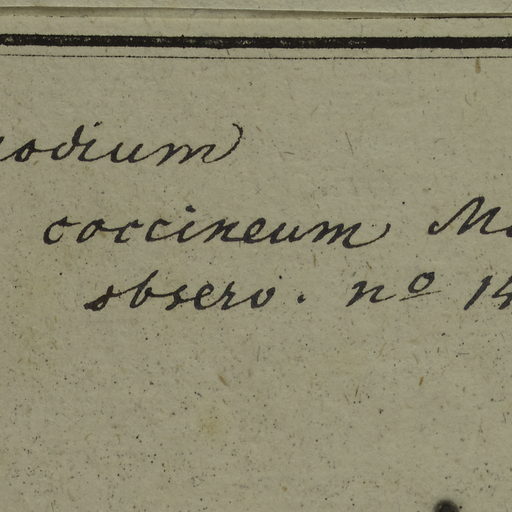 odium
coccineum M
observ. nº 14